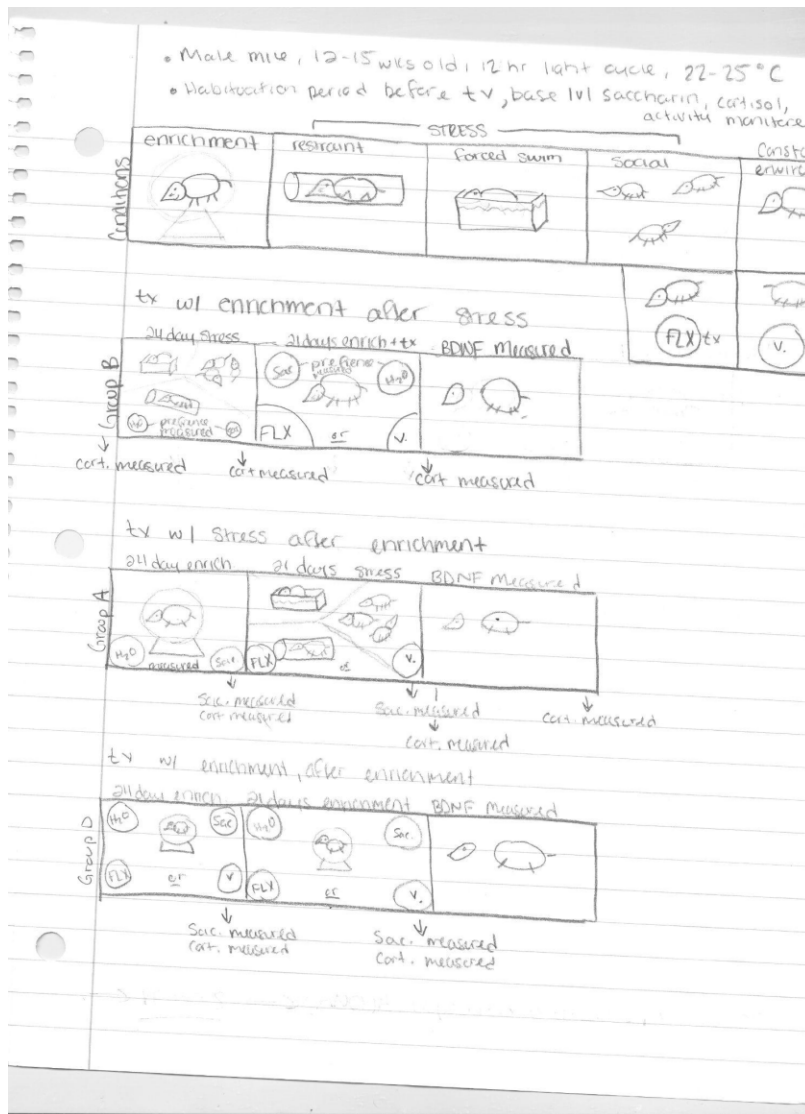 • Male mice, 12-15 wks old, 12 hr light cycle, 22-25°C
• Habituation period before tx, base lvl saccharin, cortisol,
activity monitore
STRESS
Conditions
enrichment restraint forced swim social Consta
enviro
FLX tx V.
tx w/ enrichment after stress
24 day stress 21 days enrich + tx BDNF Measured
Group B
Sac prefrence measured H2O
H2O prefrence measured
FLX or V.
cort. measured cort measured cort measured
tx w/ stress after enrichment
24 day enrich 21 days stress BDNF Measured
Group A
H2O measured Sac. FLX or V.
Sac. measured Sac. measured cort. measured
cort measured cort. measured
tx w/ enrichment, after enrichment
24 day enrich 21 days enrichment BDNF Measured
Group D
H2O Sac H2O Sac.
FLX or V FLX or V.
Sac. measured Sac. measured
cort. measured cort. measured